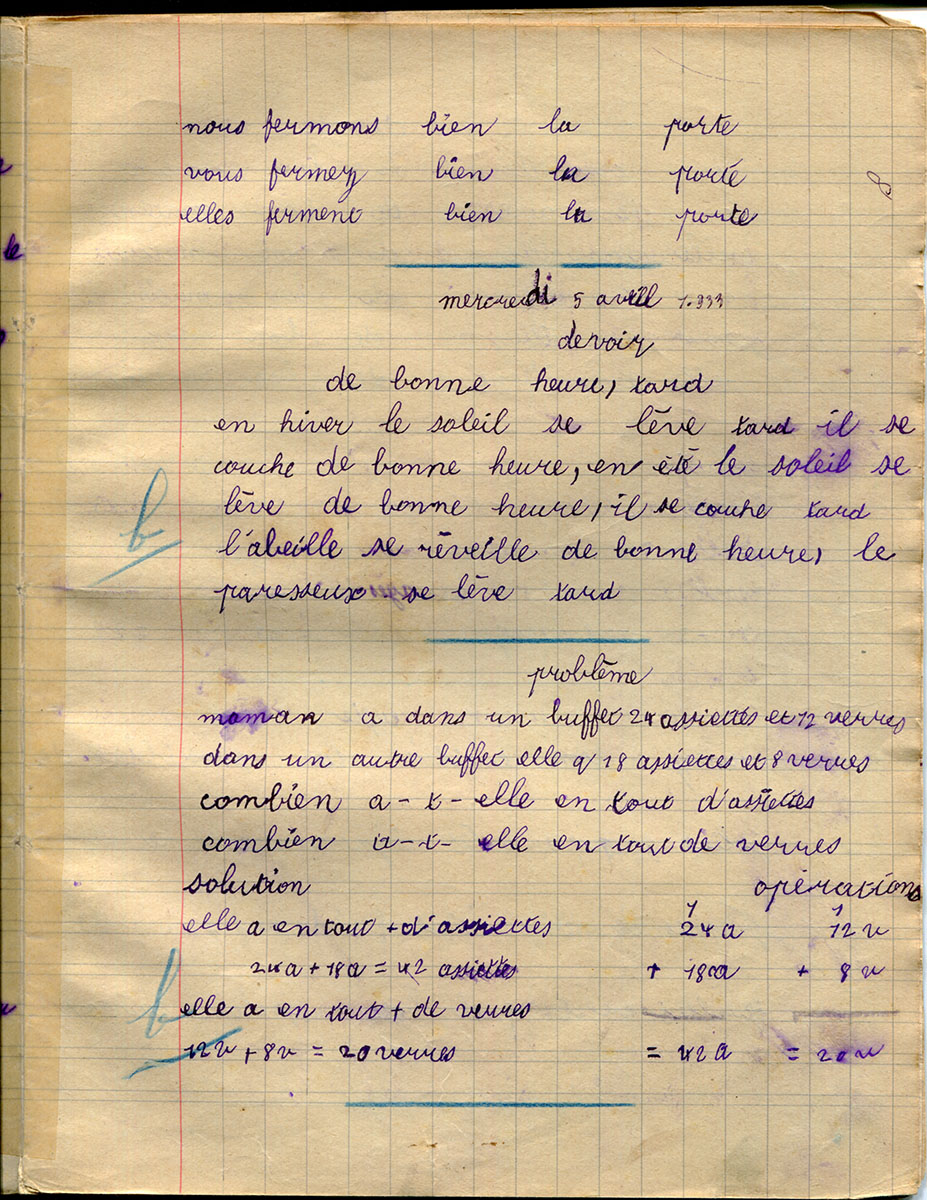 nous fermons bien la porte
vous fermez bien la porte
elles ferment bien la porte
8
mercredi 5 avril 1.933
devoir
de bonne heure, tard
en hiver le soleil se lève tard il se
couche de bonne heure, en été le soleil se
lève de bonne heure, il se couche tard
l'abeille se réveille de bonne heure, le
paresseux se lève tard
b
problème
maman a dans un buffet 24 assiettes et 12 verres
dans un autre buffet elle a 18 assiettes et 8 verres
combien a-t-elle en tout d'assiettes
combien a-t-elle en tout de verres
solution opérations
elle a en tout + d'assiettes 1 24 a 1 12 v
24a + 18a = 42 assiettes + 18a + 8 v
elle a en tout + de verres
b
12v + 8v = 20 verres = 42a = 20 v